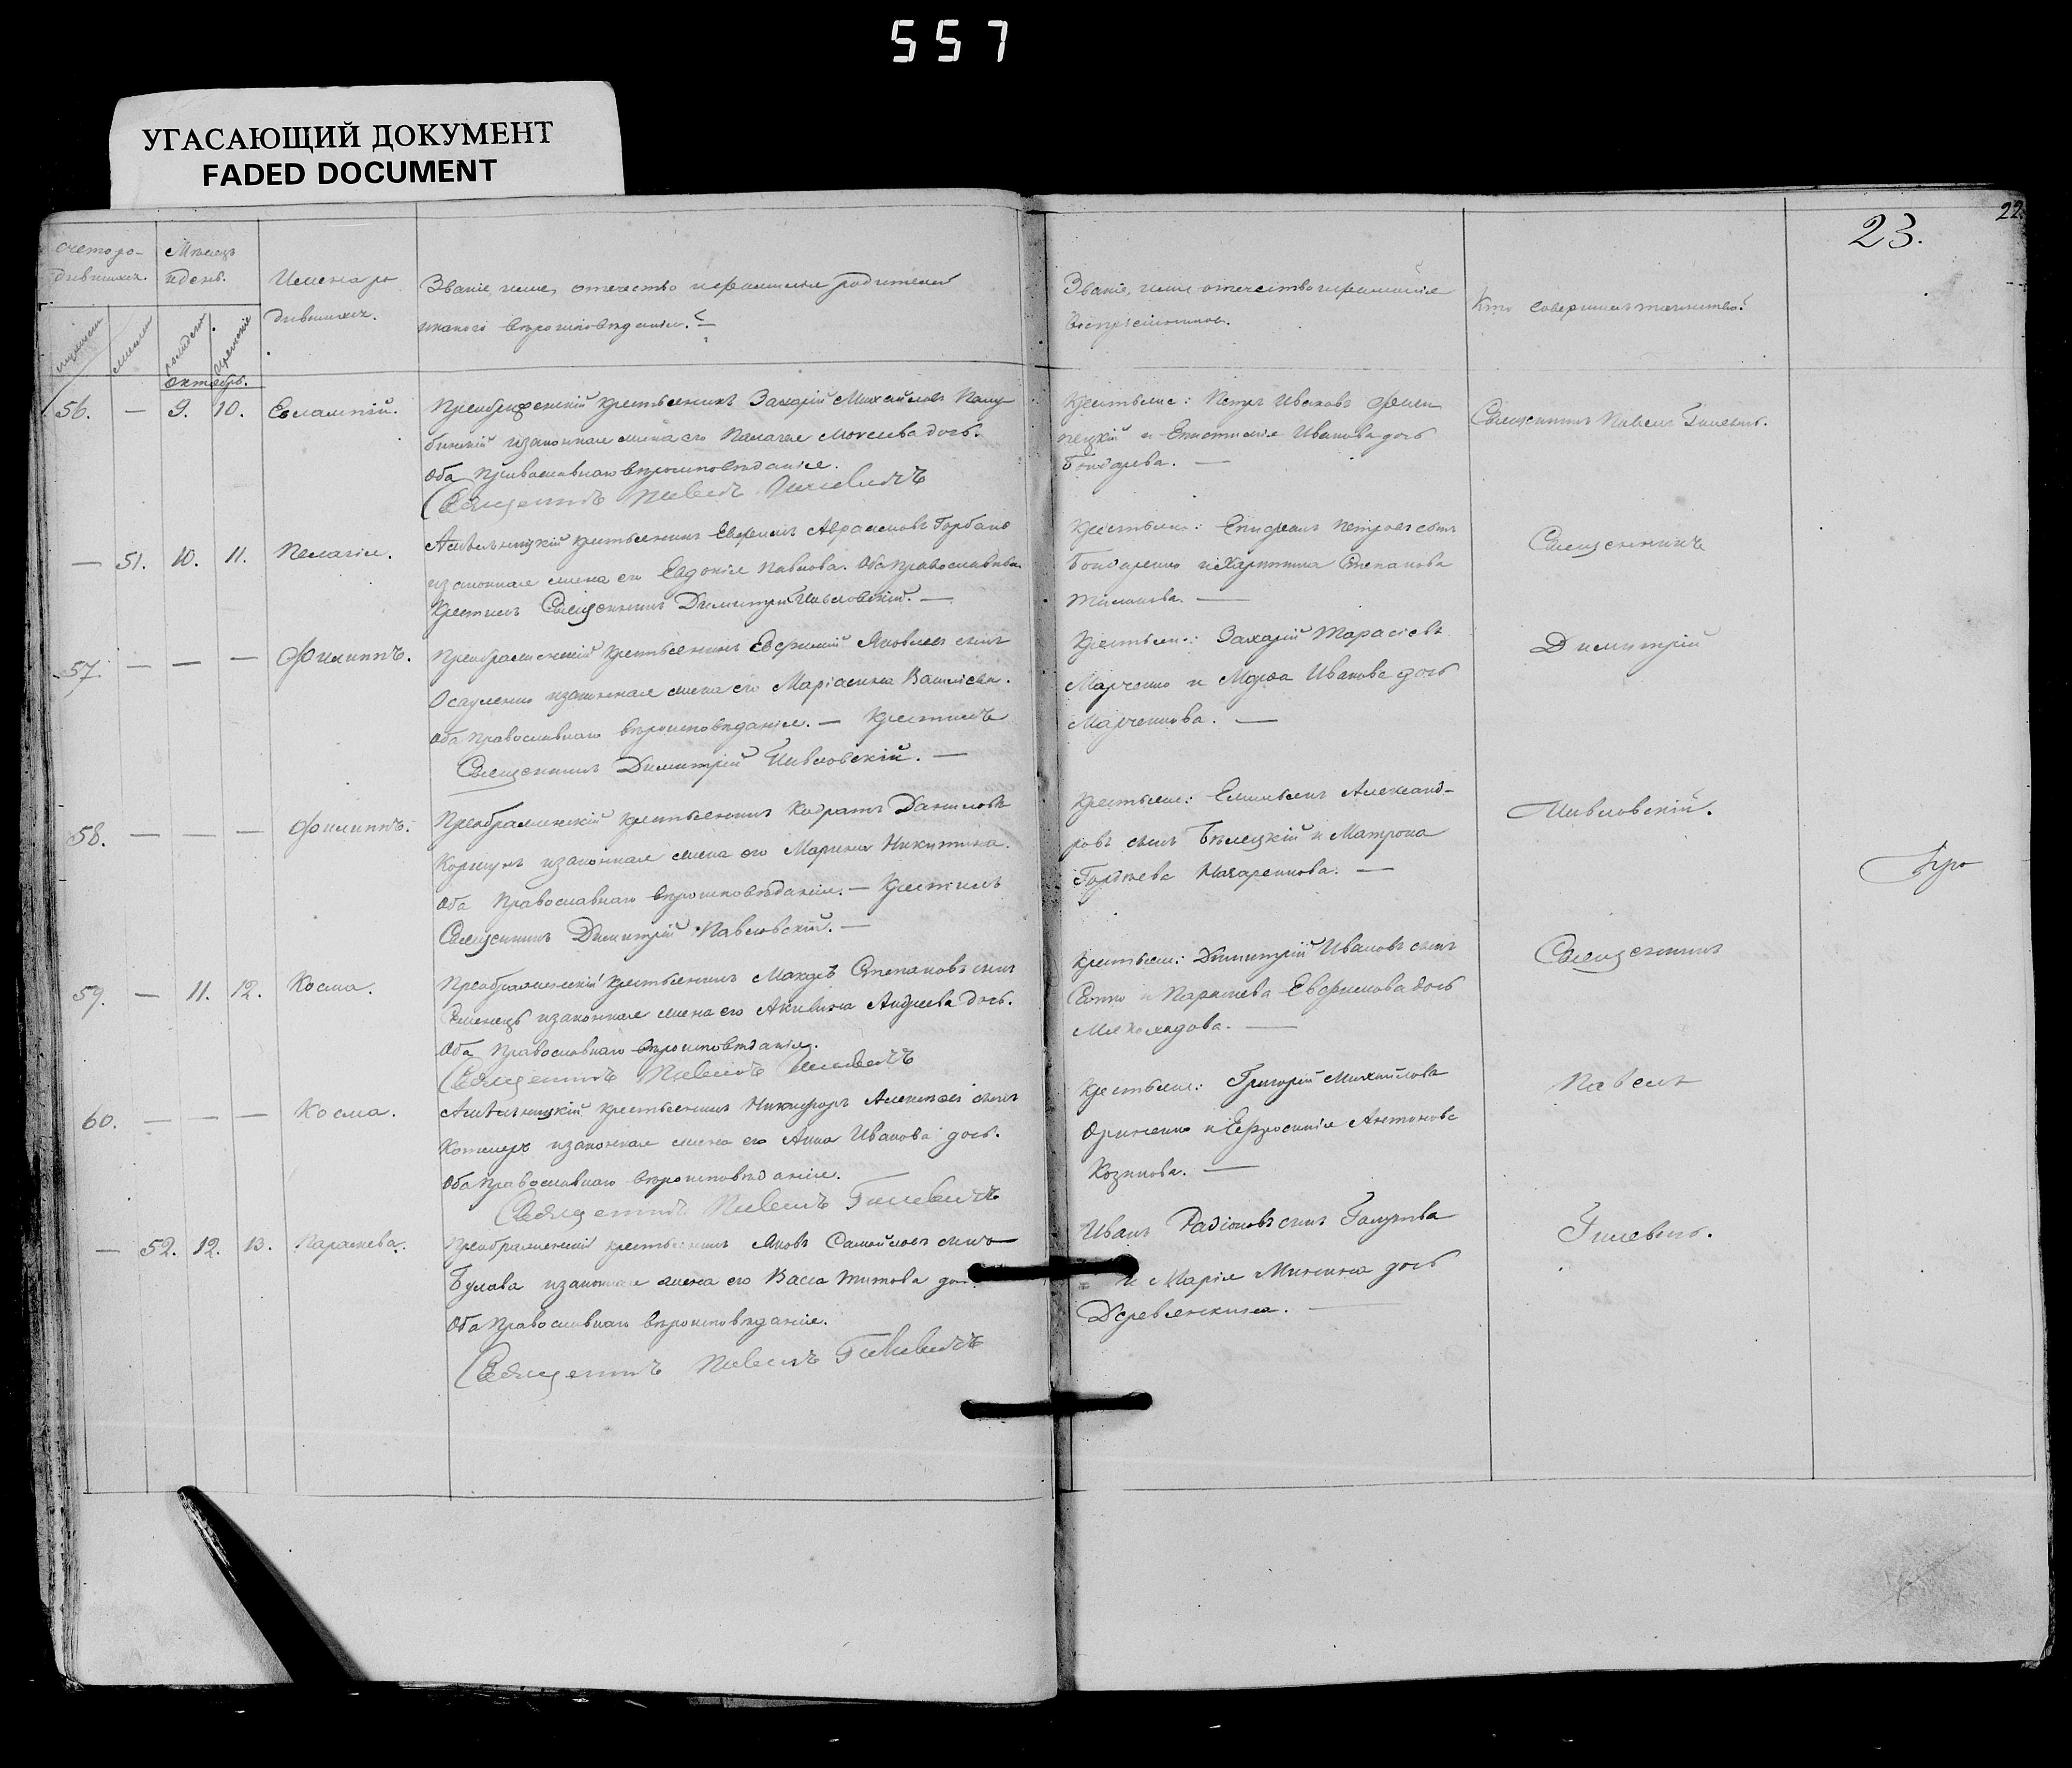 557
УГАСАЮЩИЙ ДОКУМЕНТ
FADED DOCUMENT
22.
23.
Счетъ ро-
дившихся.
Мѣсяцъ
и день.
Имена ро
дившихся.
Званіе, имя, отечество и фамилія родителей
и какого вѣроисповѣданія.
Званіе, имя, отечество и фамилія
воспріемниковъ.
Кто совершилъ таинство?
рожденія
крещеніе
Октябрь.
56. — 9. 10. Евлампій.
Преображенскій крестьянинъ Захарій Михайловъ
и законная жена его Пелагея дочь.
Оба Православнаго вѣроисповѣданія.
Священникъ Павелъ Гилевичъ
Крестьяне: Петръ Ивановъ
и Епистимія Иванова дочь
Бондарева. —
Священникъ Павелъ Гилевичъ.
— 51. 10. 11. Пелагія.
крестьянинъ Евфимъ Авраамовъ Горбань
и законная жена его Евдокія Павлова. Оба православные
Крестилъ Священникъ Димитрій Павловскій. —
Крестьяне: Епифанъ Петровъ сынъ
Бондаренко и Харитина Степанова
—
Священникъ
57. — — — Филиппъ.
Преображенскій крестьянинъ Евфимій Яковлевъ сынъ
Осауленко и законная жена его Маріанна Василіева.
Оба православнаго вѣроисповѣданія. — Крестилъ
Священникъ Димитрій Павловскій. —
Крестьяне: Захарій Тарасіевъ
Марченко и Марѳа Иванова дочь
Марченкова. —
Димитрій
58. — — — Филиппъ.
Преображенскій крестьянинъ Кодратъ Даниловъ
Коршунъ и законная жена его Марина Никитина.
Оба Православнаго вѣроисповѣданія. — Крестилъ
Священникъ Димитрій Павловскій. —
Крестьяне: Емиліанъ Александ-
ровъ сынъ Бѣлецкій и Матрона
Гордѣева Назаренкова. —
Павловскій.
59. — 11. 12. Косма.
Преображенскій крестьянинъ Степановъ сынъ
Семенецъ и законная жена его Акилина Андреева дочь.
Оба Православнаго вѣроисповѣданія.
Священникъ Павелъ Гилевичъ
Крестьяне: Димитрій Ивановъ сынъ
и Параскева Евфимова дочь
—
Священникъ
60. — — — Косма.
крестьянинъ Никифоръ Алексѣевъ сынъ
и законная жена его Анна Иванова дочь.
Оба Православнаго вѣроисповѣданія.
Священникъ Павелъ Гилевичъ
Крестьяне: Григорій Михайловъ
и Евфросинія Антонова
—
Павелъ
— 52. 12. 13. Параскева.
Преображенскій крестьянинъ Яковъ Самойловъ сынъ
Булава и законная жена его Васса Титова
Оба Православнаго вѣроисповѣданія.
Священникъ Павелъ Гилевичъ
Иванъ Радіоновъ сынъ
и Марія Минина дочь
Деревянкина. —
Гилевичъ.